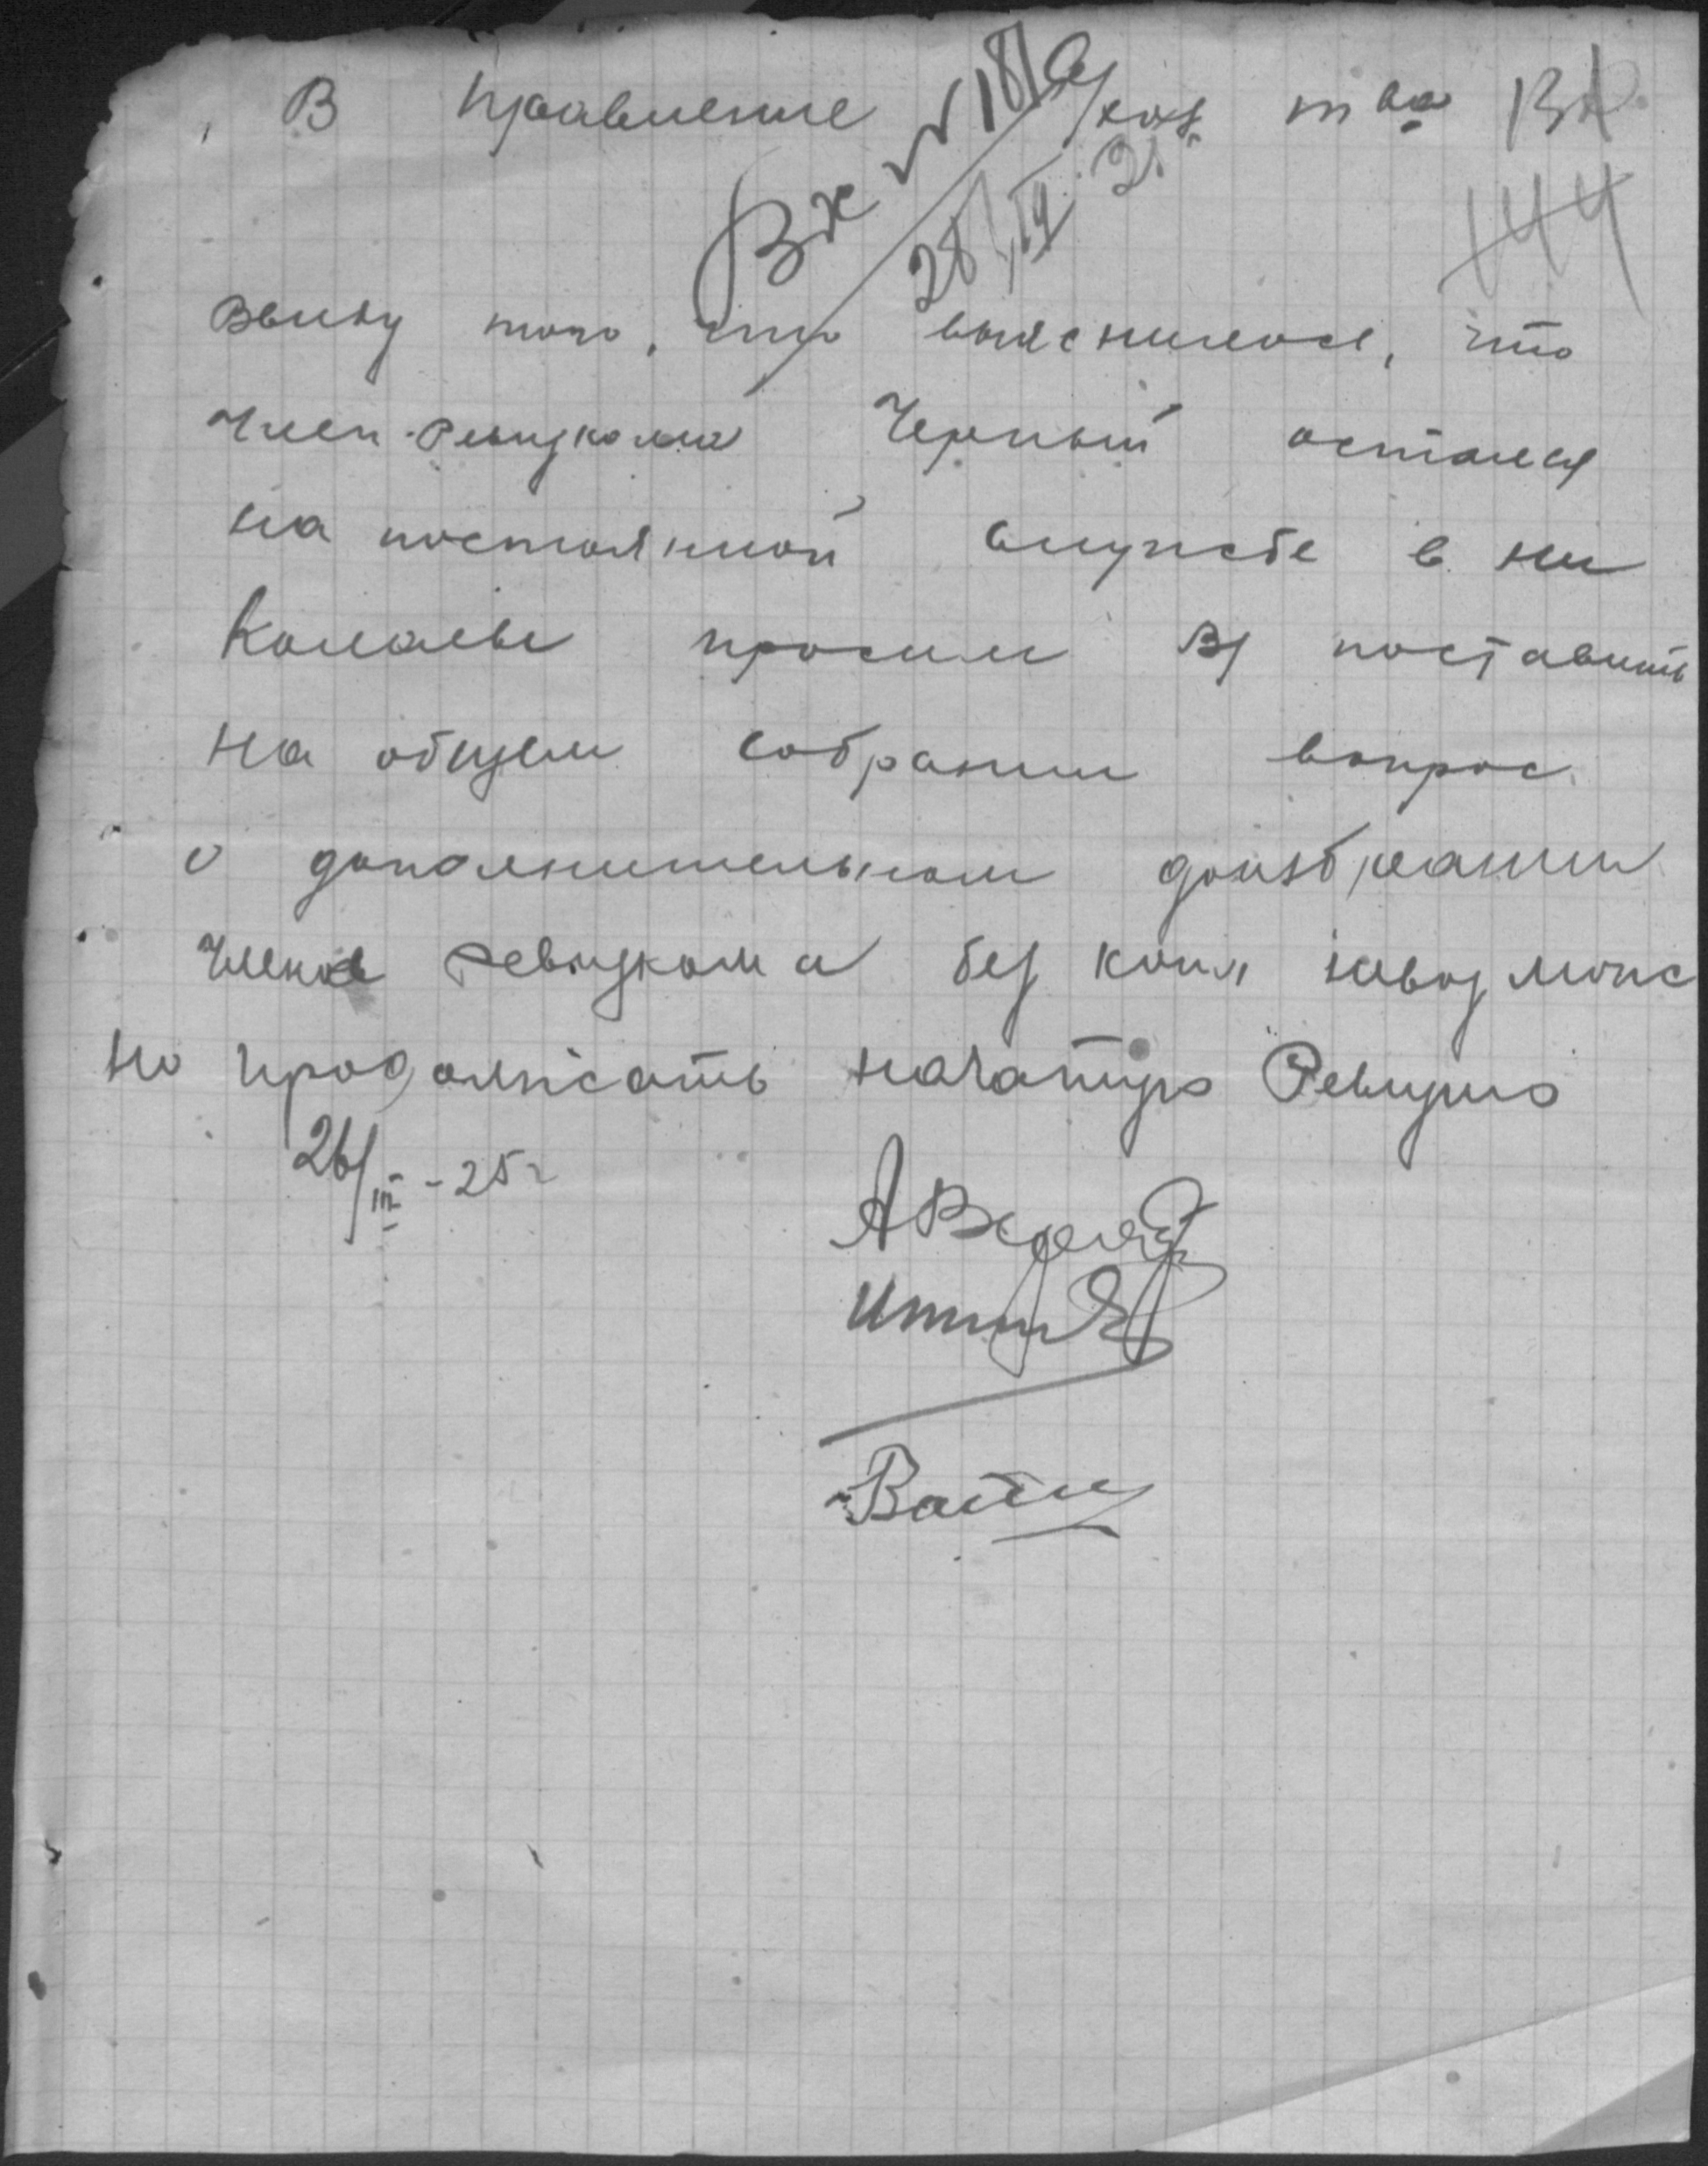 В Правление с/хоз т ва
Вх № 181
28/IV 25
144
Ввиду того, что выяснилось, что
Член Ревизкома Черный остался
на постоянной службе в Ни
колаеве просим Вз поставить
на общем собрании вопрос
о дополнительном доизбрании
Членов ревизкома без коих невозмож
но продолжать начатую Ревизию
26/III - 25 г